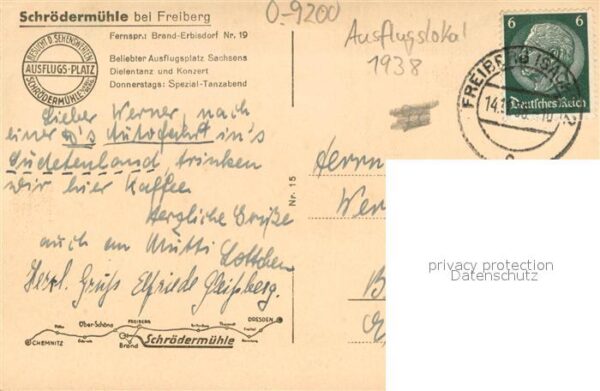 Schrödermühle bei Freiberg
Fernspr.: Brand-Erbisdorf Nr. 19
Beliebter Ausflugsplatz Sachsens
Dielentanz und Konzert
Donnerstags: Spezial-Tanzabend
BESUCHT D. SEHENSWERTEN
AUSFLUGS-PLATZ
SCHRÖDERMÜHLE
O-9200
Ausflugslokal
1938
6 6
Deutsches Reich
FREIBERG (SACHS
14.1
Lieber Werner, nach
einer Autofahrt in's
Sudetenland trinken
wir hier Kaffee
Herzliche Grüße
auch an Mutti Lottchen
Herzl. Gruß Elfriede Gleißberg.
Nr. 15
Herrn
Wer
B
privacy protection
Datenschutz
CHEMNITZ
Ober-Schöna
FREIBERG
Brand
Schrödermühle
DRESDEN